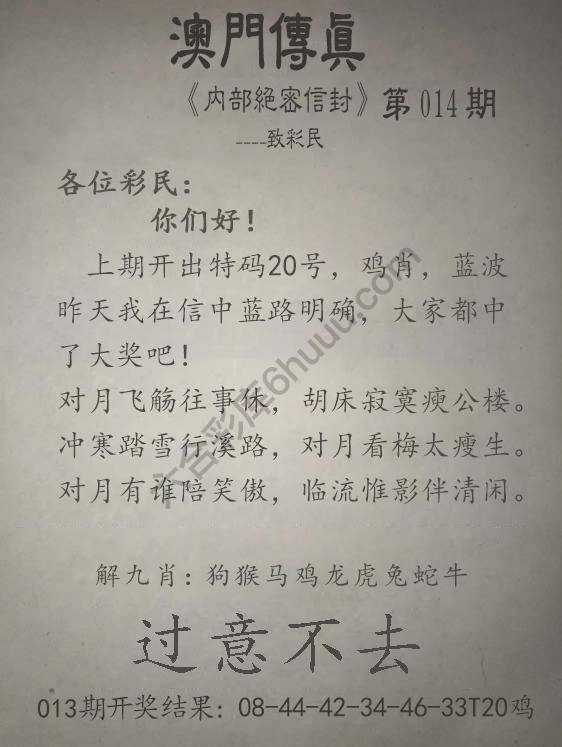 澳門傳真
《内部絕密信封》第014期
----致彩民
各位彩民：
你们好！
上期开出特码20号，鸡肖，蓝波
昨天我在信中蓝路明确，大家都中
了大奖吧！
对月飞觞往事休，胡床寂寞瘐公楼。
冲寒踏雪行溪路，对月看梅太瘦生。
对月有谁陪笑傲，临流惟影伴清闲。
六合彩库6huuu.com
解九肖：狗猴马鸡龙虎兔蛇牛
过意不去
013期开奖结果：08-44-42-34-46-33T20鸡